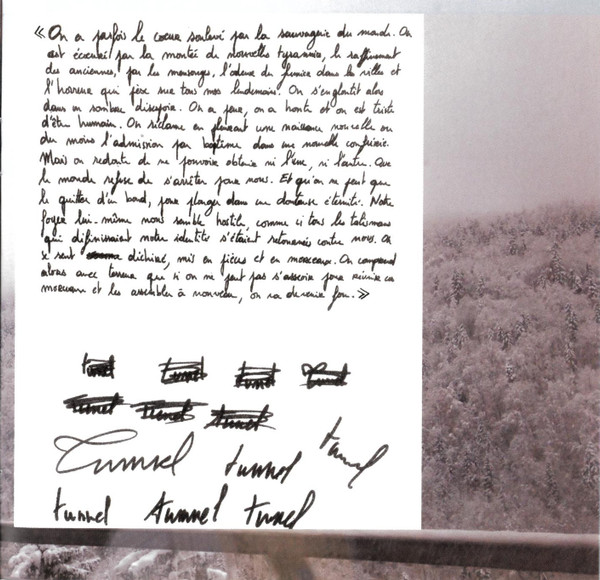 « On a parfois le coeur soulevé par la sauvagerie du monde. On
est écoeuré par la montée de nouvelles tyrannies, le raffinement
des anciennes, par les mensonges, l'odeur de fumier dans les villes et
l'horreur qui pèse sur tous nos lendemains. On s'engloutit alors
dans un sombre désespoir. On a peur, on a honte et on est triste
d'être humain. On réclame en pleurant une naissance nouvelle ou
du moins l'admission par baptême dans une nouvelle confrérie.
Mais on redoute de ne pouvoir obtenir ni l'une, ni l'autre. Que
le monde refuse de s'arrêter pour nous. Et qu'on ne peut que
le quitter d'un bond, pour plonger dans une douteuse éternité. Notre
foyer lui-même nous semble hostile, comme si tous les talismans
qui définissaient notre identité s'étaient retournés contre nous. On
se sent déchiré, mis en pièces et en morceaux. On comprend
alors avec terreur que si on ne peut pas s'asseoir pour réunir ces
morceaux et les assembler à nouveau, on va devenir fou. »
tunnel tunnel tunnel tunnel
tunnel tunnel tunnel
tunnel tunnel tunnel
tunnel tunnel tunnel